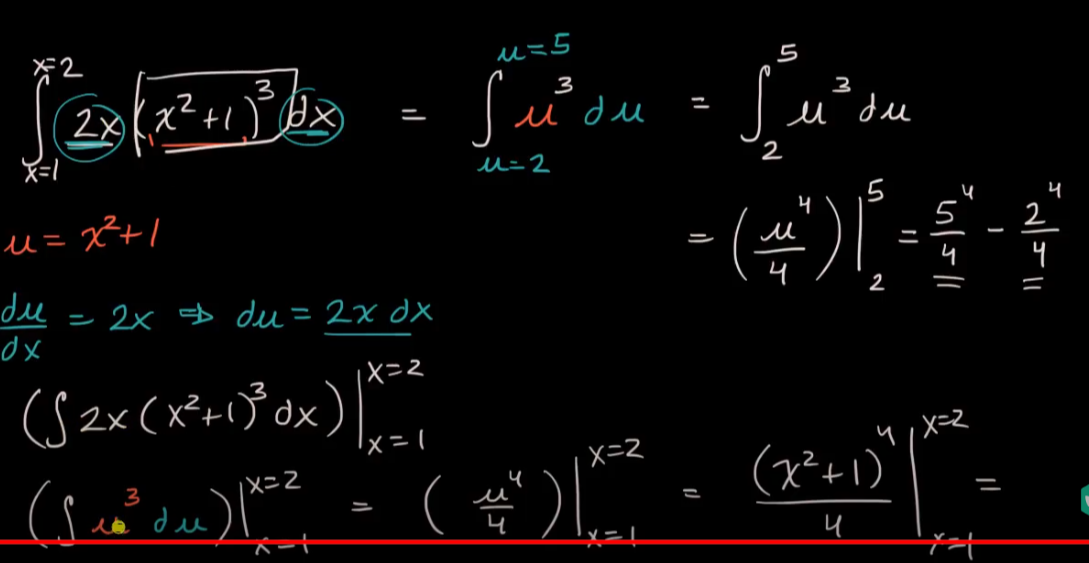 ∫_{x=1}^{x=2} 2x (x²+1)³ dx = ∫_{u=2}^{u=5} u³ du = ∫_2^5 u³ du
= (u⁴/4)|_2^5 = 5⁴/4 - 2⁴/4
u = x²+1
du/dx = 2x ⇒ du = 2x dx
(∫ 2x (x²+1)³ dx)|_{x=1}^{x=2}
(∫ u³ du)|_{x=1}^{x=2} = (u⁴/4)|_{x=1}^{x=2} = (x²+1)⁴/4 |_{x=1}^{x=2} =